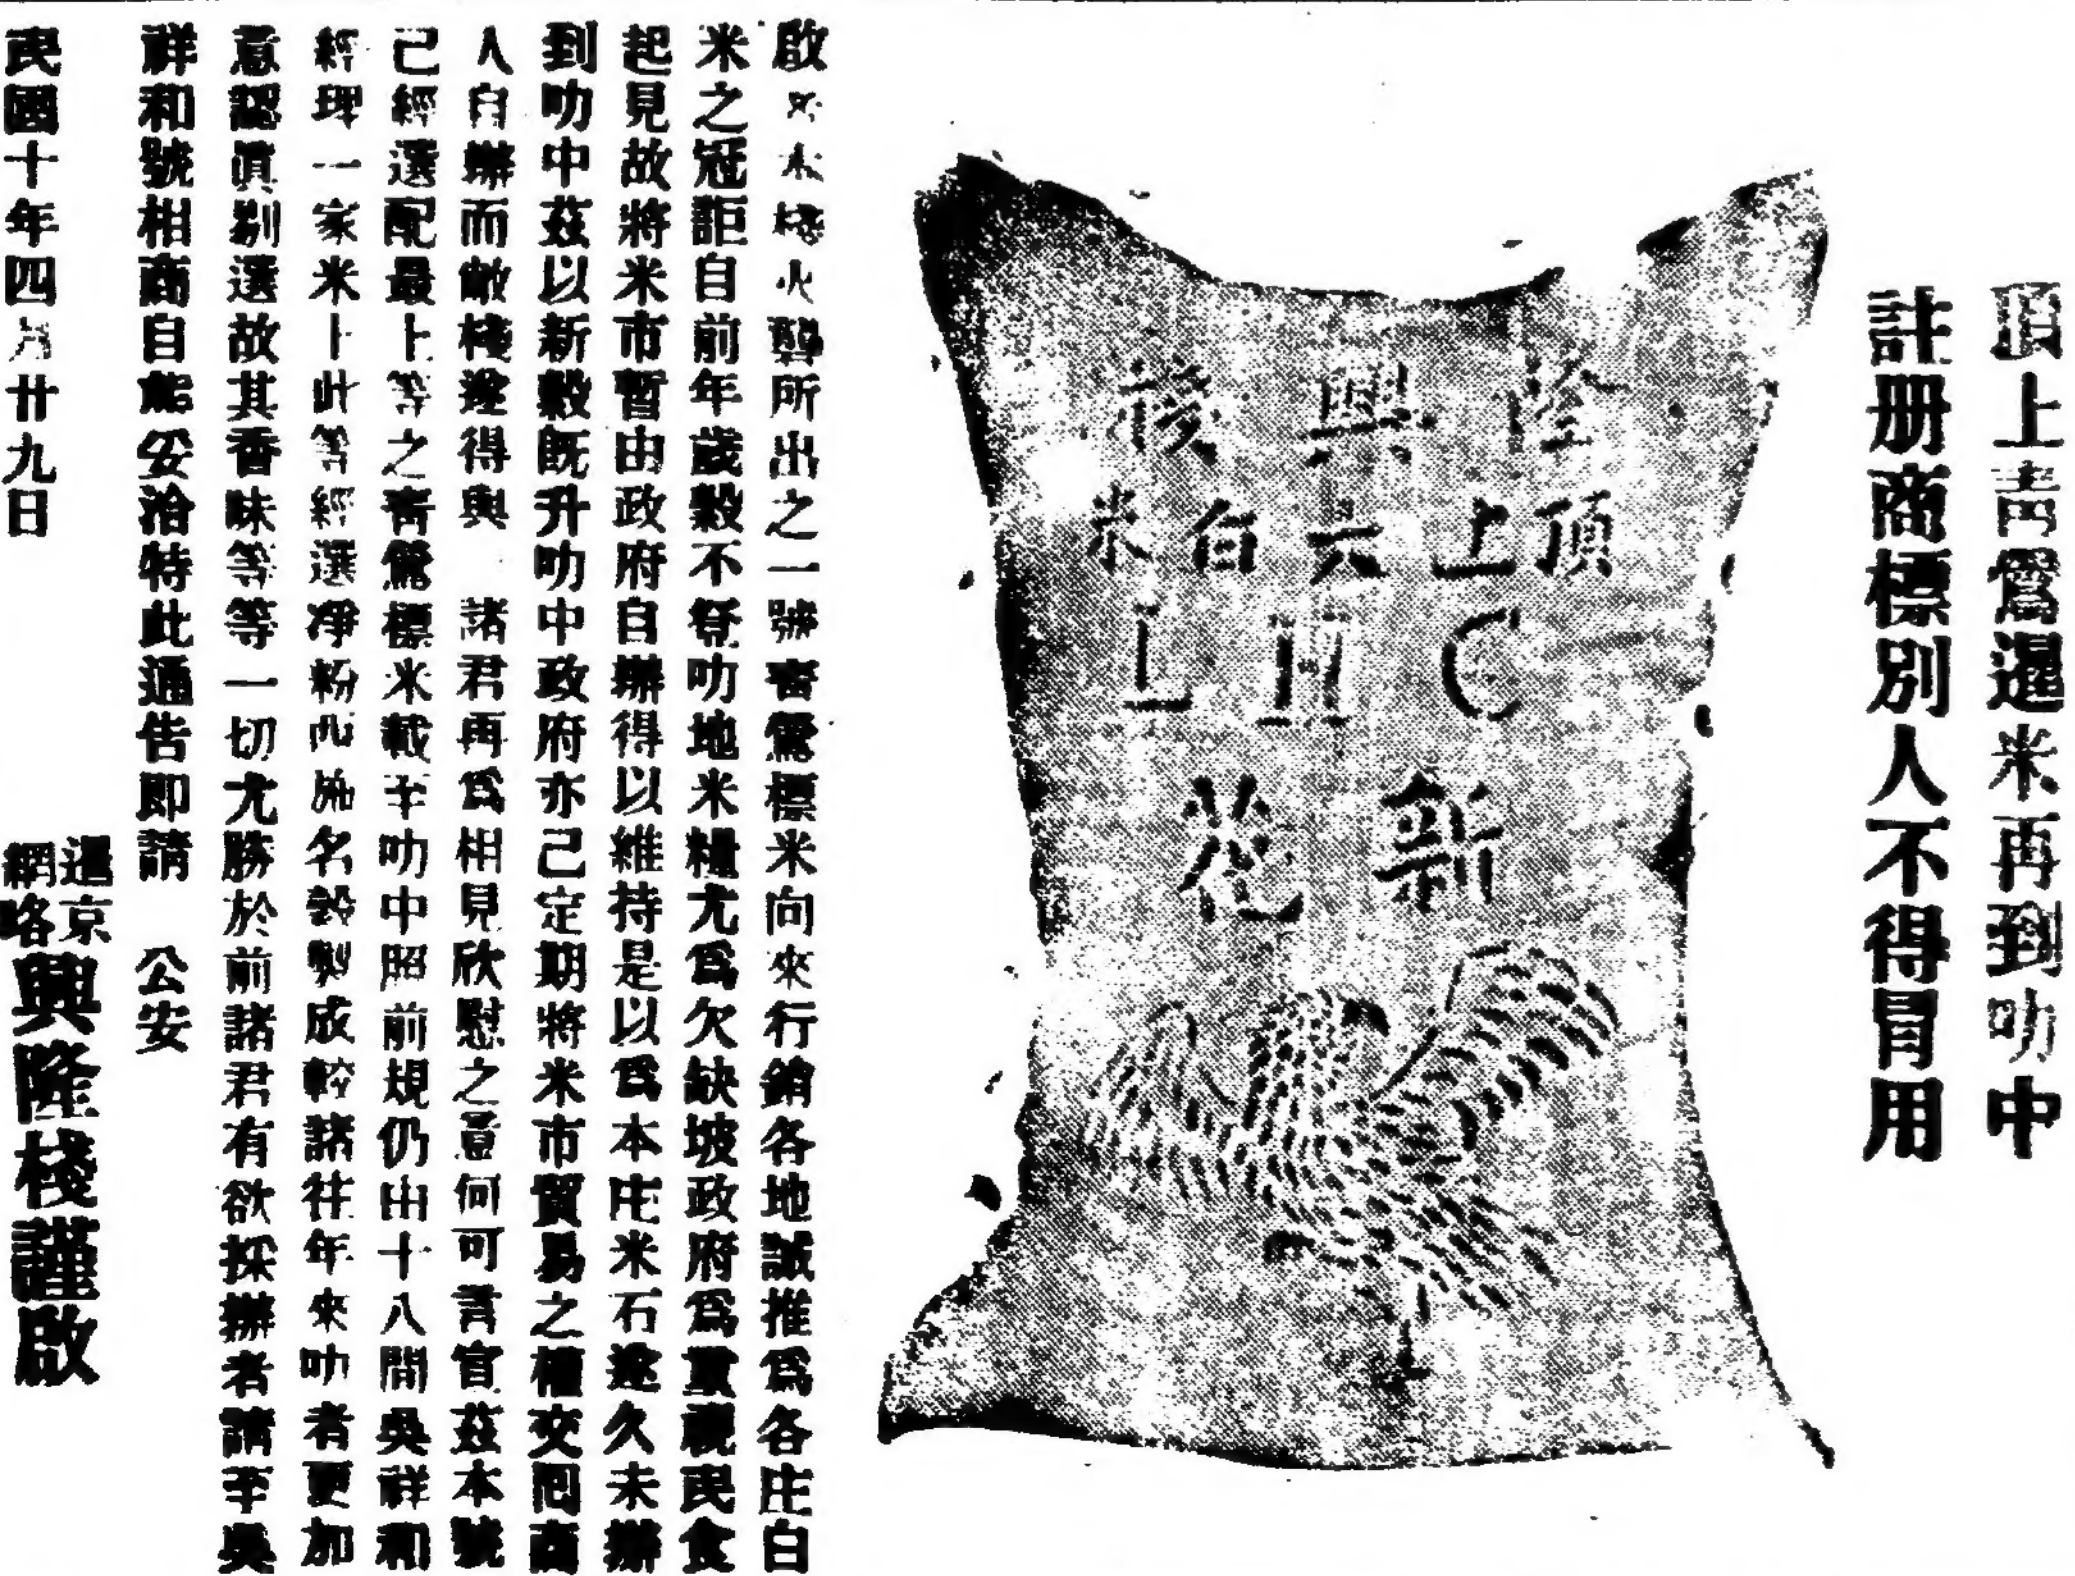 頂上青鶯暹米再到叻中
註册商標別人不得冒用
隆興棧
頂上六白米
C H L
新花
啟 米棧火礱所出之一號靑鶯標米向來行銷各地誠推爲各庄白
米之冠詎自前年歲穀不登叻地米糧尤爲欠缺坡政府爲重視民食
起見故將米市暫由政府自辦得以維持是以爲本庄米石遂久未辦
到叻中茲以新穀既升叻中政府亦己定期將米市貿易之權交囘商
人自辦而敝棧遂得與 諸君再爲相見欣慰之意何可言宣茲本號
己經選配最上等之靑鶯標米載至叻中照前規仍由十八間吳祥和
經理一家米上此等經選淨粉 名 製成較諸往年來叻者更加
意認眞剔選故其香味等等一切尤勝於前諸君有欲採辦者請至吳
祥和號相商自能妥洽特此通告卽請 公安
民國十年四月廿九日
暹京
網咯
興隆棧謹啟